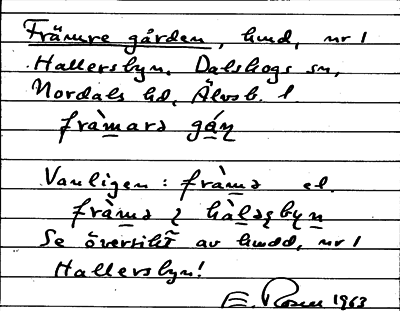 Främre gården, hmd, nr 1
Hallersbyn. Dalskogs sn,
Nordals hd, Älvsb. l.
fràmarə gáɳ
Vanligen: fràmə el.
fràmə i hàləʂbyn
Se översikt av hmdd, nr 1
Hallersbyn!
E. Rosen 1963